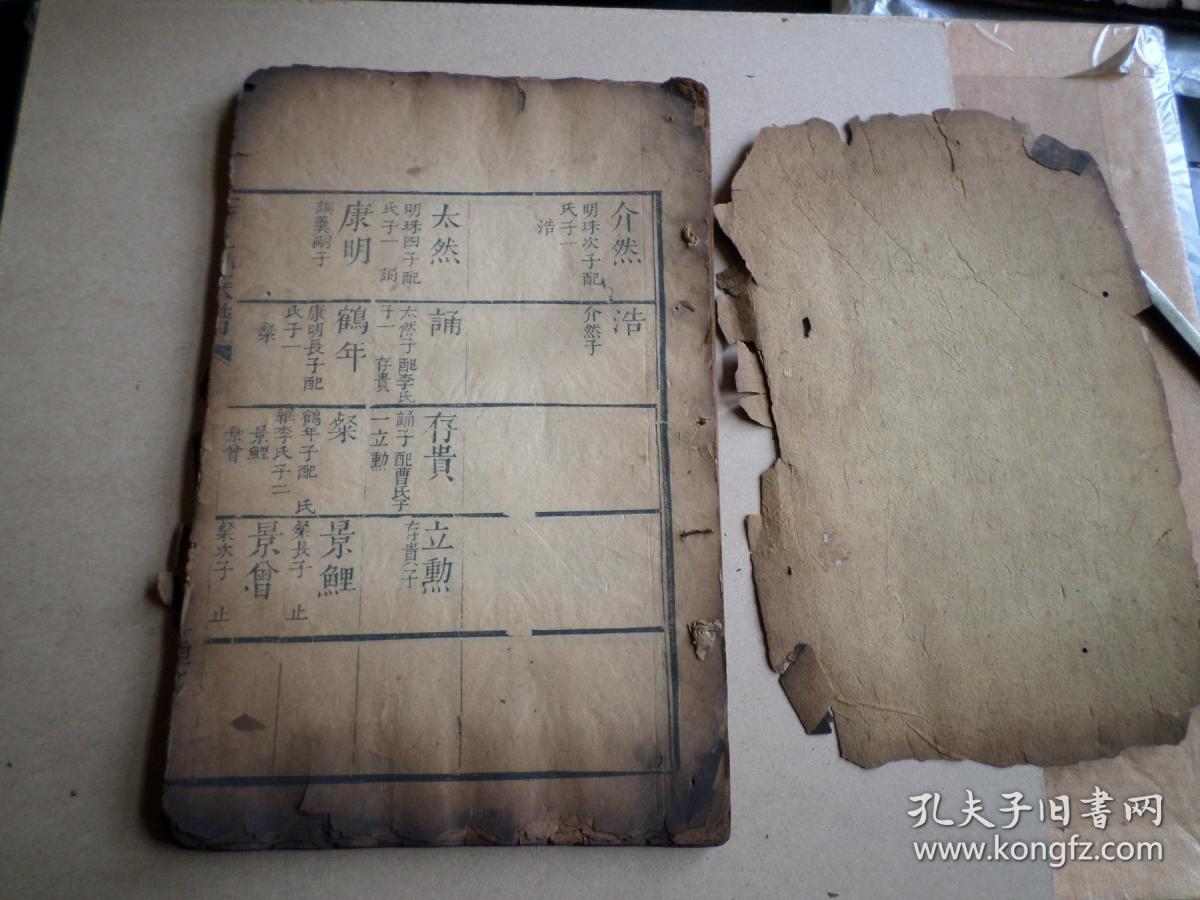 介然
明珠次子配
氏子一
浩
太然
明珠四子配
氏子一 誦
康明
嗣子
浩
介然子
誦
太然子配李氏
子一 存貴
鶴年
康明長子配
氏子一
粲
存貴
誦子配曹氏子
一立勲
粲
鶴年子配 氏
繼李氏子二
景鯉
景曾
立勲
存貴子
景鯉
粲長子 止
景曾
粲次子 止
孔夫子旧书网
www.kongfz.com